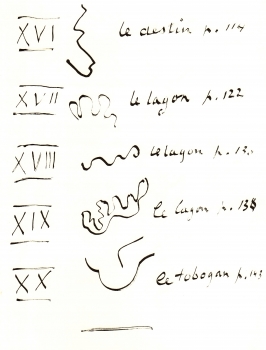 XVI le destin p. 114
XVII le lagon p. 122
XVIII le lagon p.
XIX le lagon p.
XX le tobogan p. 143